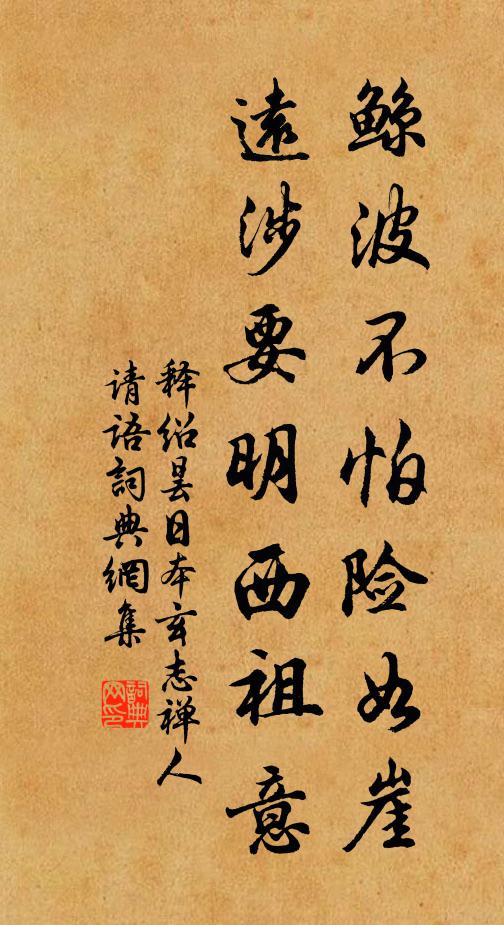 鲸波不怕险如崖
遠涉要明西祖意
释绍昙日本玄志禅人
请语詞典網集
詞典
网印